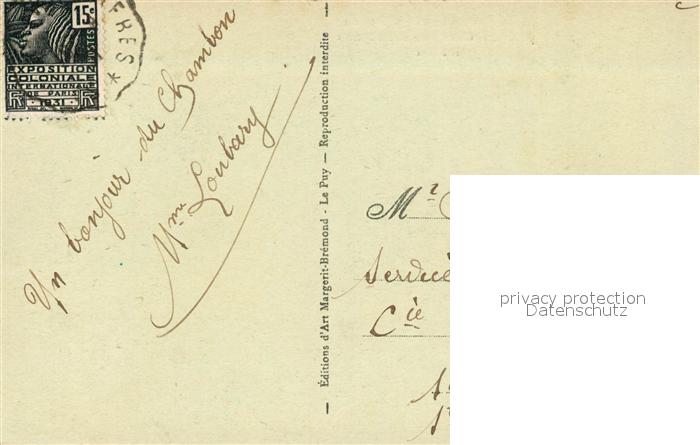 15c
POSTES
EXPOSITION
COLONIALE
INTERNATIONALE
DE PARIS
1931
RF RF
Un bonjour du Chambon
Mme Loubary
— Éditions d'Art Margerit-Brémond - Le Puy — Reproduction interdite —
Mr
Service
Cie
privacy protection
Datenschutz